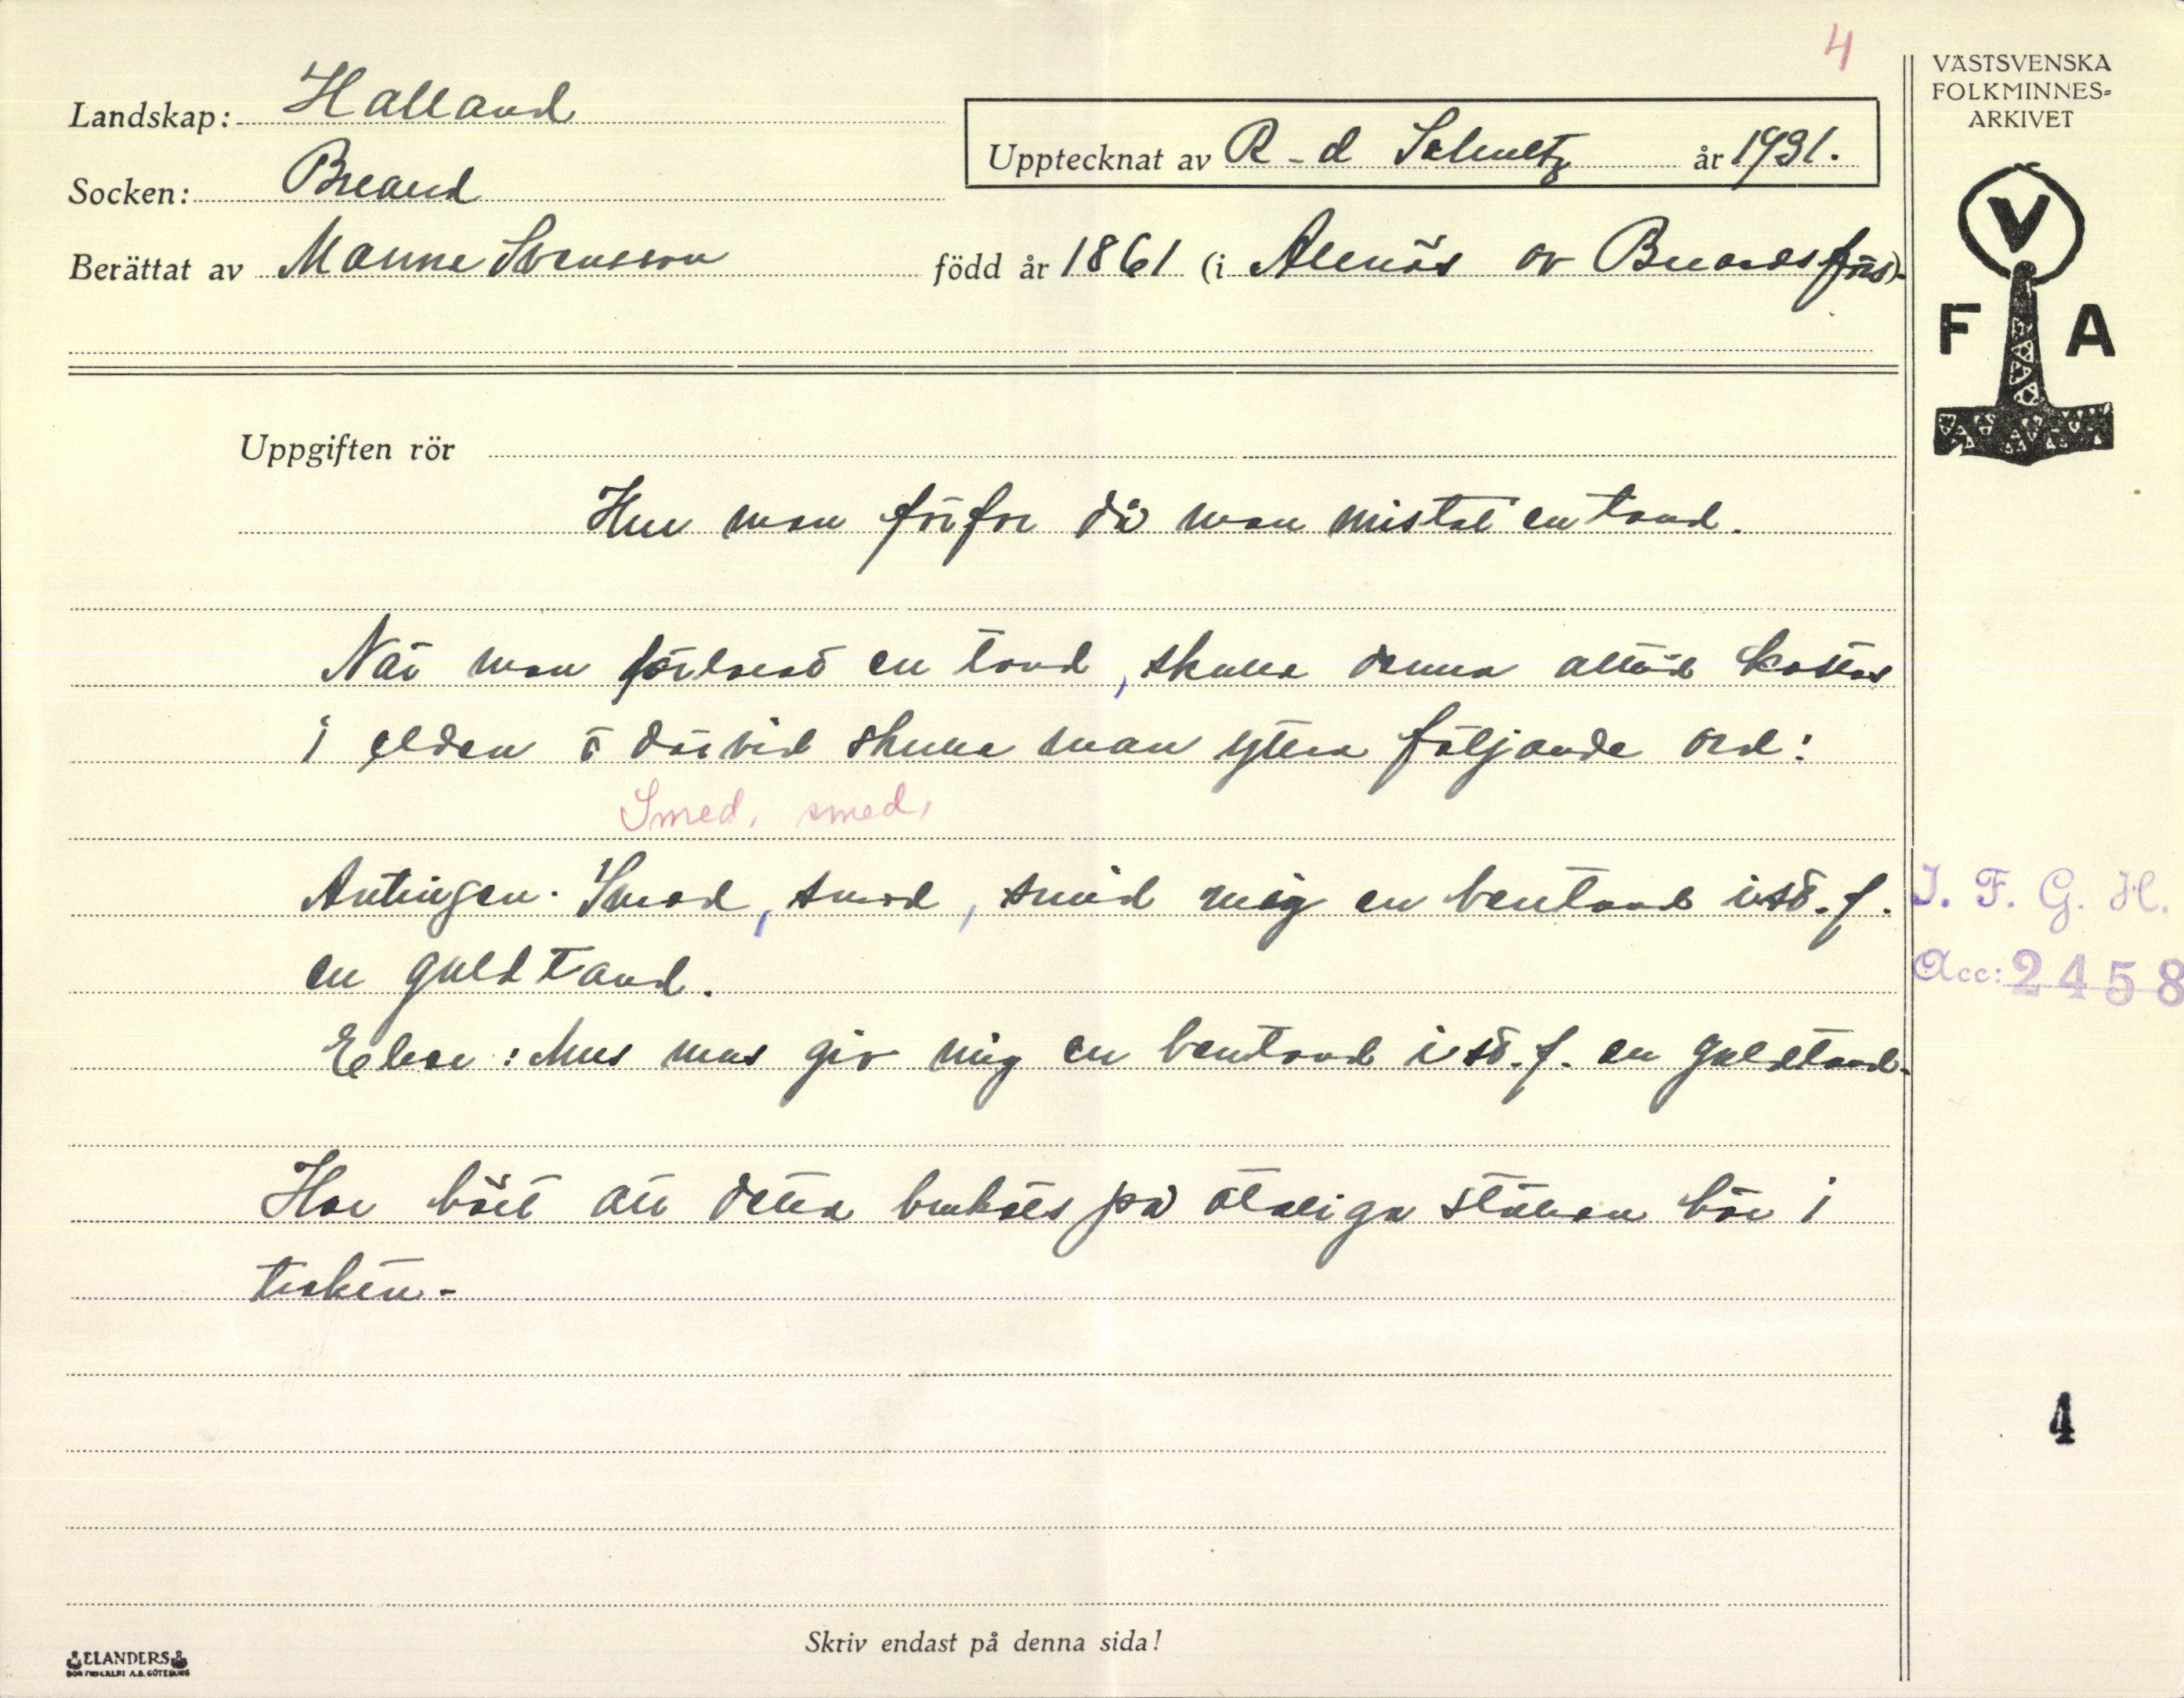 4
VÄSTSVENSKA
FOLKMINNES-
ARKIVET
Landskap: Halland
Upptecknat av R-d Schultz år 1931.
Socken: Breared
Berättat av Manne Svensson född år 1861 (i av Breareds förs).
V
F A
Uppgiften rör
Hur man förfor då man mistat en tand.
När man förlorat en tand, skulle denna alltid kastas
i elden o därvid skulle man yttra följande ord:
Smed, smed,
Antingen. Smed, smed, smid mig en bentand i st. f.
en guldtand.
Eller: Mus mus giv mig en bentand i st. f. en guldtand.
Har hört att detta brukats på åtskliga ställen här i
trakten.
I. F. G. H.
Acc: 2458
4
Skriv endast på denna sida!
ELANDERS
BOKTRYCKERI A.B. GÖTEBORG